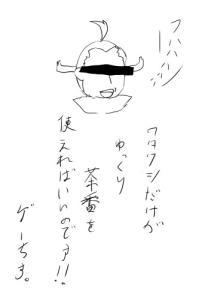 フハハハハ
ワタクシだけが
ゆっくり
茶番を
使えればいいのです!!
ゲーちす。